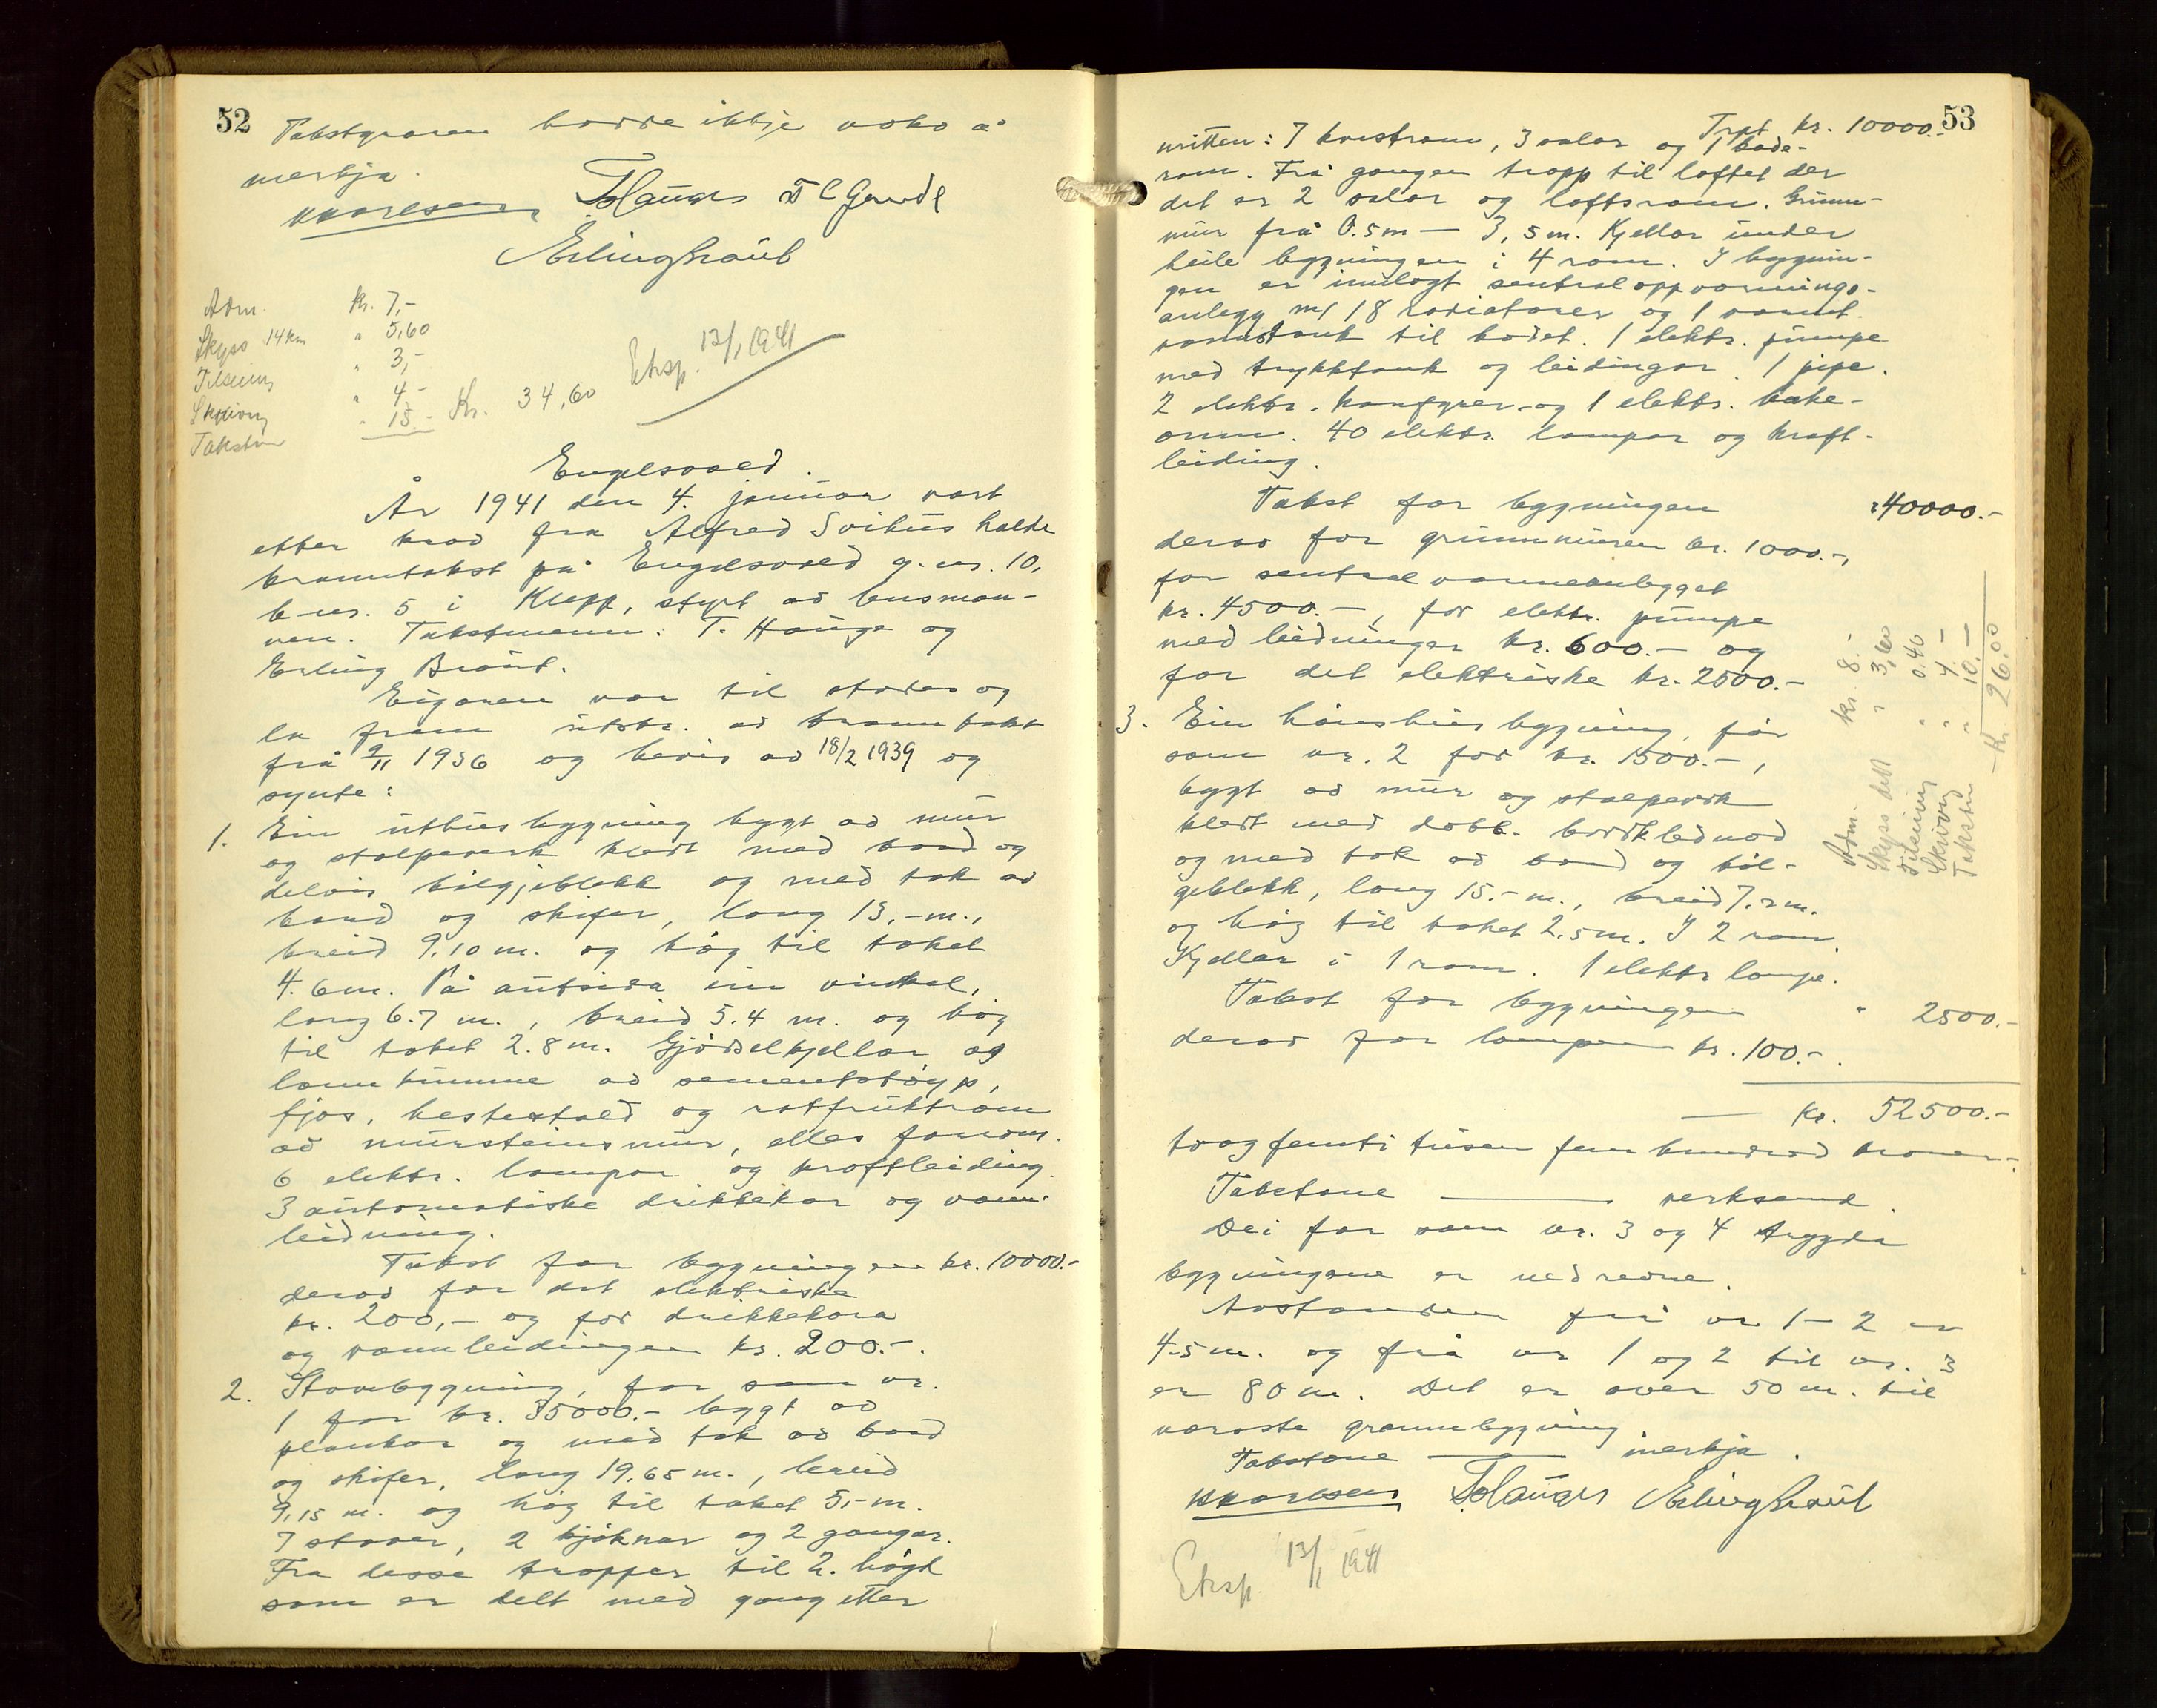 52
Takstgrannen hadde ikkje noko å
merkja.
T. Hauge
Erling Braut
Adm. Kr. 7,-
Skyss 14 km " 5,60
Tilseing " 3,-
Skriving " 4,-
Takstm " 15.- Kr. 34,60
Eksp. 13/1 1941
Engelsvold.
År 1941 den 4. januar vart
etter krav fra Alfred Svihus halde
branntakst på Engelsvold g.nr. 10,
b.nr. 5 i Klepp, styrt av lensman-
nen. Takstmenn: T. Hauge og
Erling Braut.
Eigaren var til stades og
la fram utskr. av branntakst
frå 9/11 1936 og bevis av 18/2 1939 og
synte:
1. Ein uthusbygning bygt av mur
og stolpeverk kledt med bord og
delvis bølgjeblekk og med tak av
bord og skifer, lang 13,-m.,
breid 9.10 m. og høg til taket
4.6m. På autsida ein vinkel,
lang 6.7 m., breid 5.4 m. og høg
til taket 2.8 m. Gjødselkjellar og
lannkumme av sementstøyp,
fjos, hestestald og rotfruktrom
av mursteinsmur, elles forrom.
6 elektr. lampor og kraftleiding.
3 automatiske drikkekar og vann-
leidning.
Takst for bygningen kr. 10000.-
derav for det elektriske
kr. 200,- og for drikkekara
og vannleidingen kr. 200.-.
2. Stovebygning, før som nr.
1 for kr. 35000.- bygt av
plankar og med tak av bord
og skifer, lang 19,65 m., breid
9,15 m. og høg til taket 5,-m.
7 stover, 2 kjøknar og 2 gangar.
Fra desse tropper til 2. høgd
som er delt med gang etter
53
Trpt. kr. 10000.-
midten: 7 kvistrom, 3 salar og 1 bade-
rom. Frå gangen tropp til loftet der
det er 2 salar og loftsrom. Grunn-
mur frå 0.5m - 3,5m. Kjellar under
heile bygningen i 4 rom. I bygnin-
gen er innlagt sentraloppvarmings-
anlegg m/ 18 radiatorer og 1 varmt-
vanstank til badet. 1 elektr. pumpe
med trykktank og leidingar. 1 pipe.
2 elektr. komfyrer og 1 elektr. bake-
omn. 40 elektr. lampor og kraft-
leiding.
Takst for bygningen " 40000.-
derav for grunnmuren kr. 1000.-,
for sentralvarmeanlegget
kr. 4500.-, for elektr. pumpe
med leidninger kr. 600.- og
for det elektriske kr. 2500.-
3. Ein hønshusbygning, før
som nr. 2 for kr. 1500.-,
bygt av mur og stolpeverk
kledt med dobb. bordklednad
og med tak av bord og bøl-
geblekk, lang 15.-m., breid 7.2m.
og høg til taket 2.5m. I 2 rom.
Kjellar i 1 rom. 1 elektr lampe.
Takst for bygningen " 2500.-
derav for lampen kr. 100.-.
Kr. 52500.-
toogfemti tusen fem hundrad kroner.
Takstane — verksemd.
Dei før som nr. 3 og 4 trygda
bygningane er nedrevne.
Avstanden frå nr 1-2 er
45m. og frå nr 1 og 2 til nr. 3
er 80 m. Det er over 50 m. til
næraste grannebygning.
Takstane — merkja.
T. Hauge Erling Braut
Eksp. 13/1 1941
Adm. kr 8.-
Skyss delt " 3,60
Tilseing " 0.40
Skriving " 4.-
Takstm " 10.-
Kr. 26.00